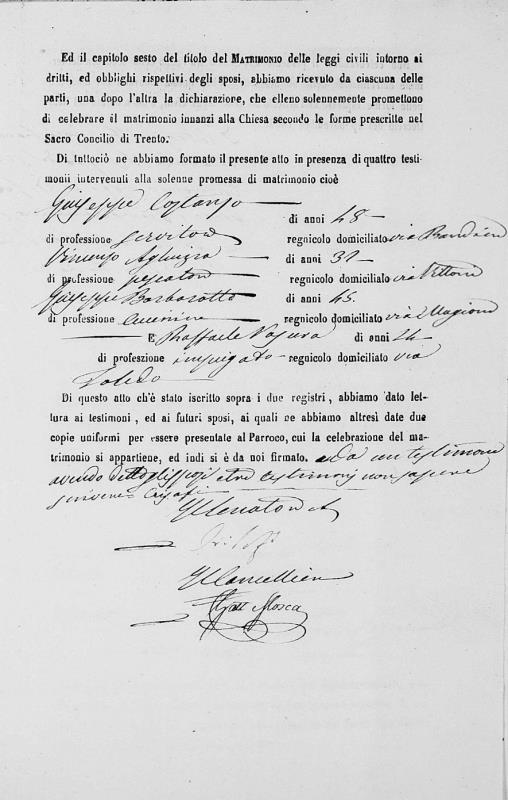 Ed il capitolo sesto del titolo del MATRIMONIO delle leggi civili intorno ai
dritti, ed obblighi rispettivi degli sposi, abbiamo ricevuto da ciascuna delle
parti, una dopo l'altra la dichiarazione, che elleno solennemente promettono
di celebrare il matrimonio innanzi alla Chiesa secondo le forme prescritte nel
Sacro Concilio di Trento.
Di tuttociò ne abbiamo formato il presente atto in presenza di quattro testi-
monii intervenuti alla solenne promessa di matrimonio cioè
Giuseppe Costanzo
di anni 48
di professione servitore regnicolo domiciliato via
Vincenzo di anni
di professione pescatore regnicolo domiciliato via
Giuseppe di anni 45.
di professione regnicolo domiciliato via
E Raffaele di anni 24
di professione impiegato regnicolo domiciliato via
Toledo
Di questo atto ch'è stato iscritto sopra i due registri, abbiamo dato let-
tura ai testimoni, ed ai futuri sposi, ai quali ne abbiamo altresì date due
copie uniformi per essere presentate al Parroco, cui la celebrazione del ma-
trimonio si appartiene, ed indi si è da noi firmato. e da un testimone
avendo detto gli sposi e tre testimonj non sapere
scrivere
Il Senatore
Il Cancelliere
Mosca